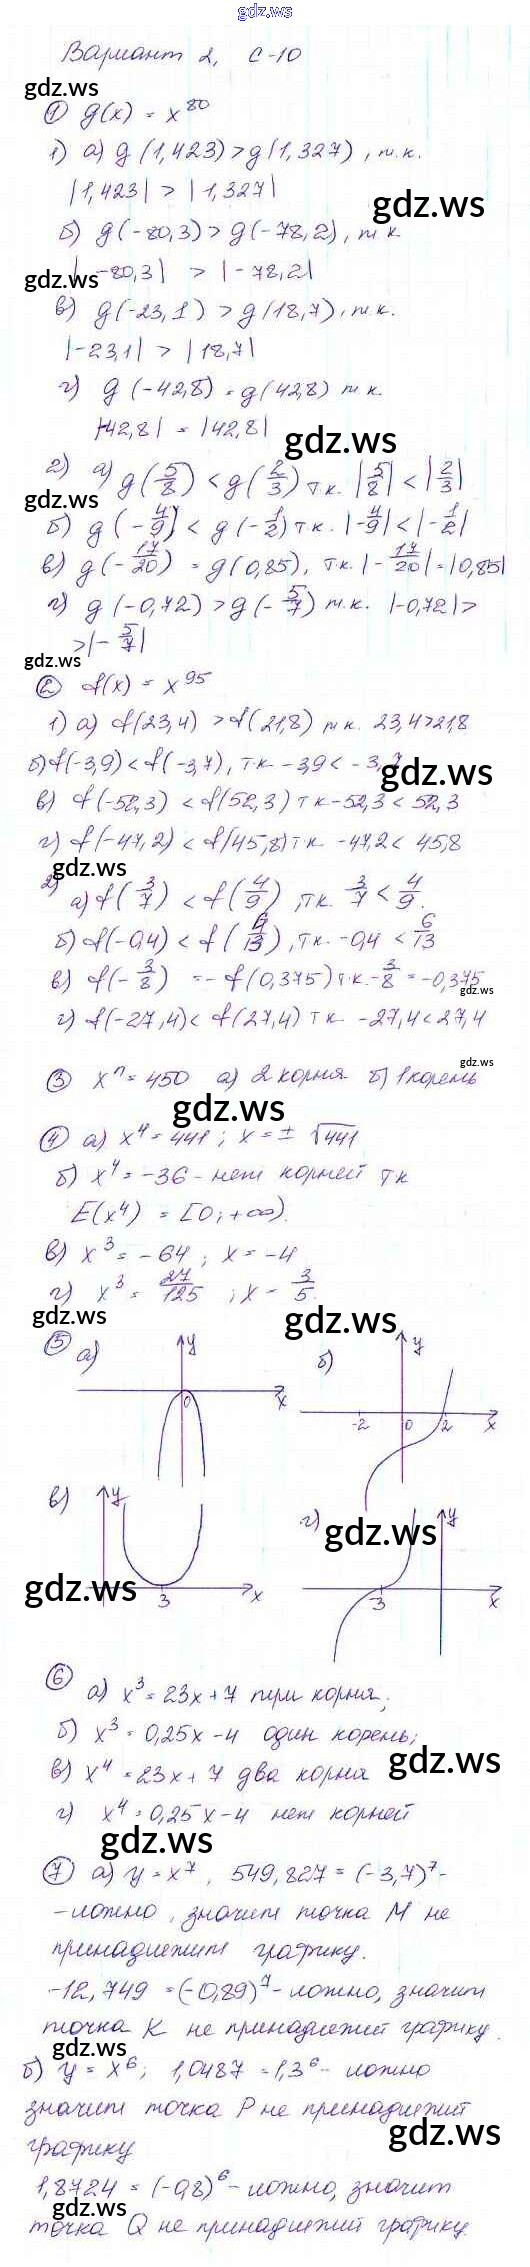 gdz.ws
Вариант 2, С-10
gdz.ws
① g(x) = x^80
1) а) g(1,423) > g(1,327), т.к.
|1,423| > |1,327|
gdz.ws
б) g(-80,3) > g(-78,2), т.к.
|-80,3| > |-78,2|
gdz.ws
в) g(-23,1) > g(18,7), т.к.
|-23,1| > |18,7|
г) g(-42,8) = g(42,8) т.к.
|-42,8| = |42,8|
gdz.ws
2) а) g(5/8) < g(2/3) т.к. |5/8| < |2/3|
gdz.ws
б) g(-4/9) < g(-1/2) т.к. |-4/9| < |-1/2|
в) g(-17/20) = g(0,85), т.к. |-17/20| = |0,85|
г) g(-0,72) > g(-5/7) т.к. |-0,72| >
> |-5/7|
gdz.ws
② f(x) = x^95
1) а) f(23,4) > f(21,8) т.к. 23,4 > 21,8
б) f(-3,9) < f(-3,7), т.к -3,9 < -3,7
gdz.ws
в) f(-52,3) < f(52,3) т.к -52,3 < 52,3
г) f(-47,2) < f(45,8) т.к -47,2 < 45,8
gdz.ws
2) а) f(3/7) < f(4/9), т.к. 3/7 < 4/9.
б) f(-0,4) < f(6/13), т.к. -0,4 < 6/13
в) f(-3/8) = -f(0,375) т.к. -3/8 = -0,375
gdz.ws
г) f(-27,4) < f(27,4) т.к -27,4 < 27,4
gdz.ws
③ x^n = 450 а) 2 корня б) 1 корень
gdz.ws
④ а) x^4 = 441; x = ± √441
б) x^4 = -36 - нет корней т.к
E(x^4) = [0; +∞).
в) x^3 = -64; x = -4
г) x^3 = 27/125; x = 3/5.
gdz.ws
gdz.ws
⑤ а) y 0 x
б) y -2 0 2 x
в) y 3 x
г) y 3 x
gdz.ws
gdz.ws
⑥ а) x^3 = 23x + 7 три корня;
б) x^3 = 0,25x - 4 один корень;
в) x^4 = 23x + 7 два корня
gdz.ws
г) x^4 = 0,25x - 4 нет корней
gdz.ws
⑦ а) y = x^7, 549,827 = (-3,7)^7 -
- ложно, значит точка M не
принадлежит графику.
-12,749 = (-0,89)^7 - ложно, значит
точка K не принадлежит графику.
б) y = x^6; 1,0487 = 1,3^6 - ложно
значит точка P не принадлежит
графику
gdz.ws
1,8724 = (-0,8)^6 - ложно, значит
gdz.ws
точка Q не принадлежит графику.
gdz.ws